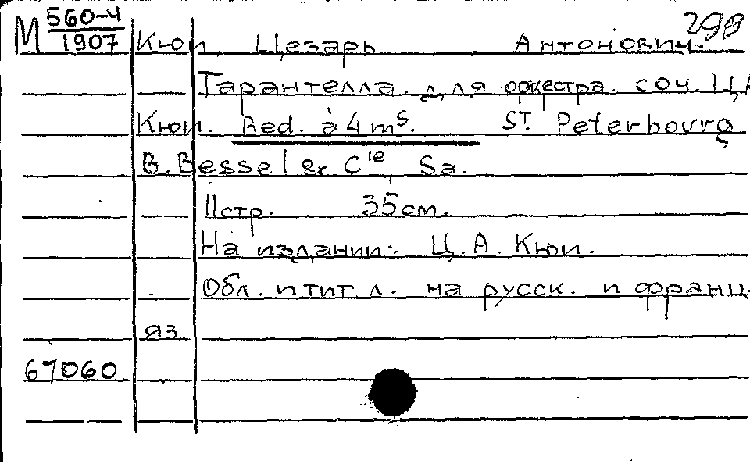 М 560-4/1907
299
Кюи, Цезарь Антонович.
Тарантелла для оркестра. соч. Ц.
Кюи. Red. à 4 ms. St. Peterbourg
B. Bessel & Cie, Sa.
11стр. 35см.
На издании: Ц. А. Кюи.
Обл. и тит. л. на русск. и франц.
яз.
67060